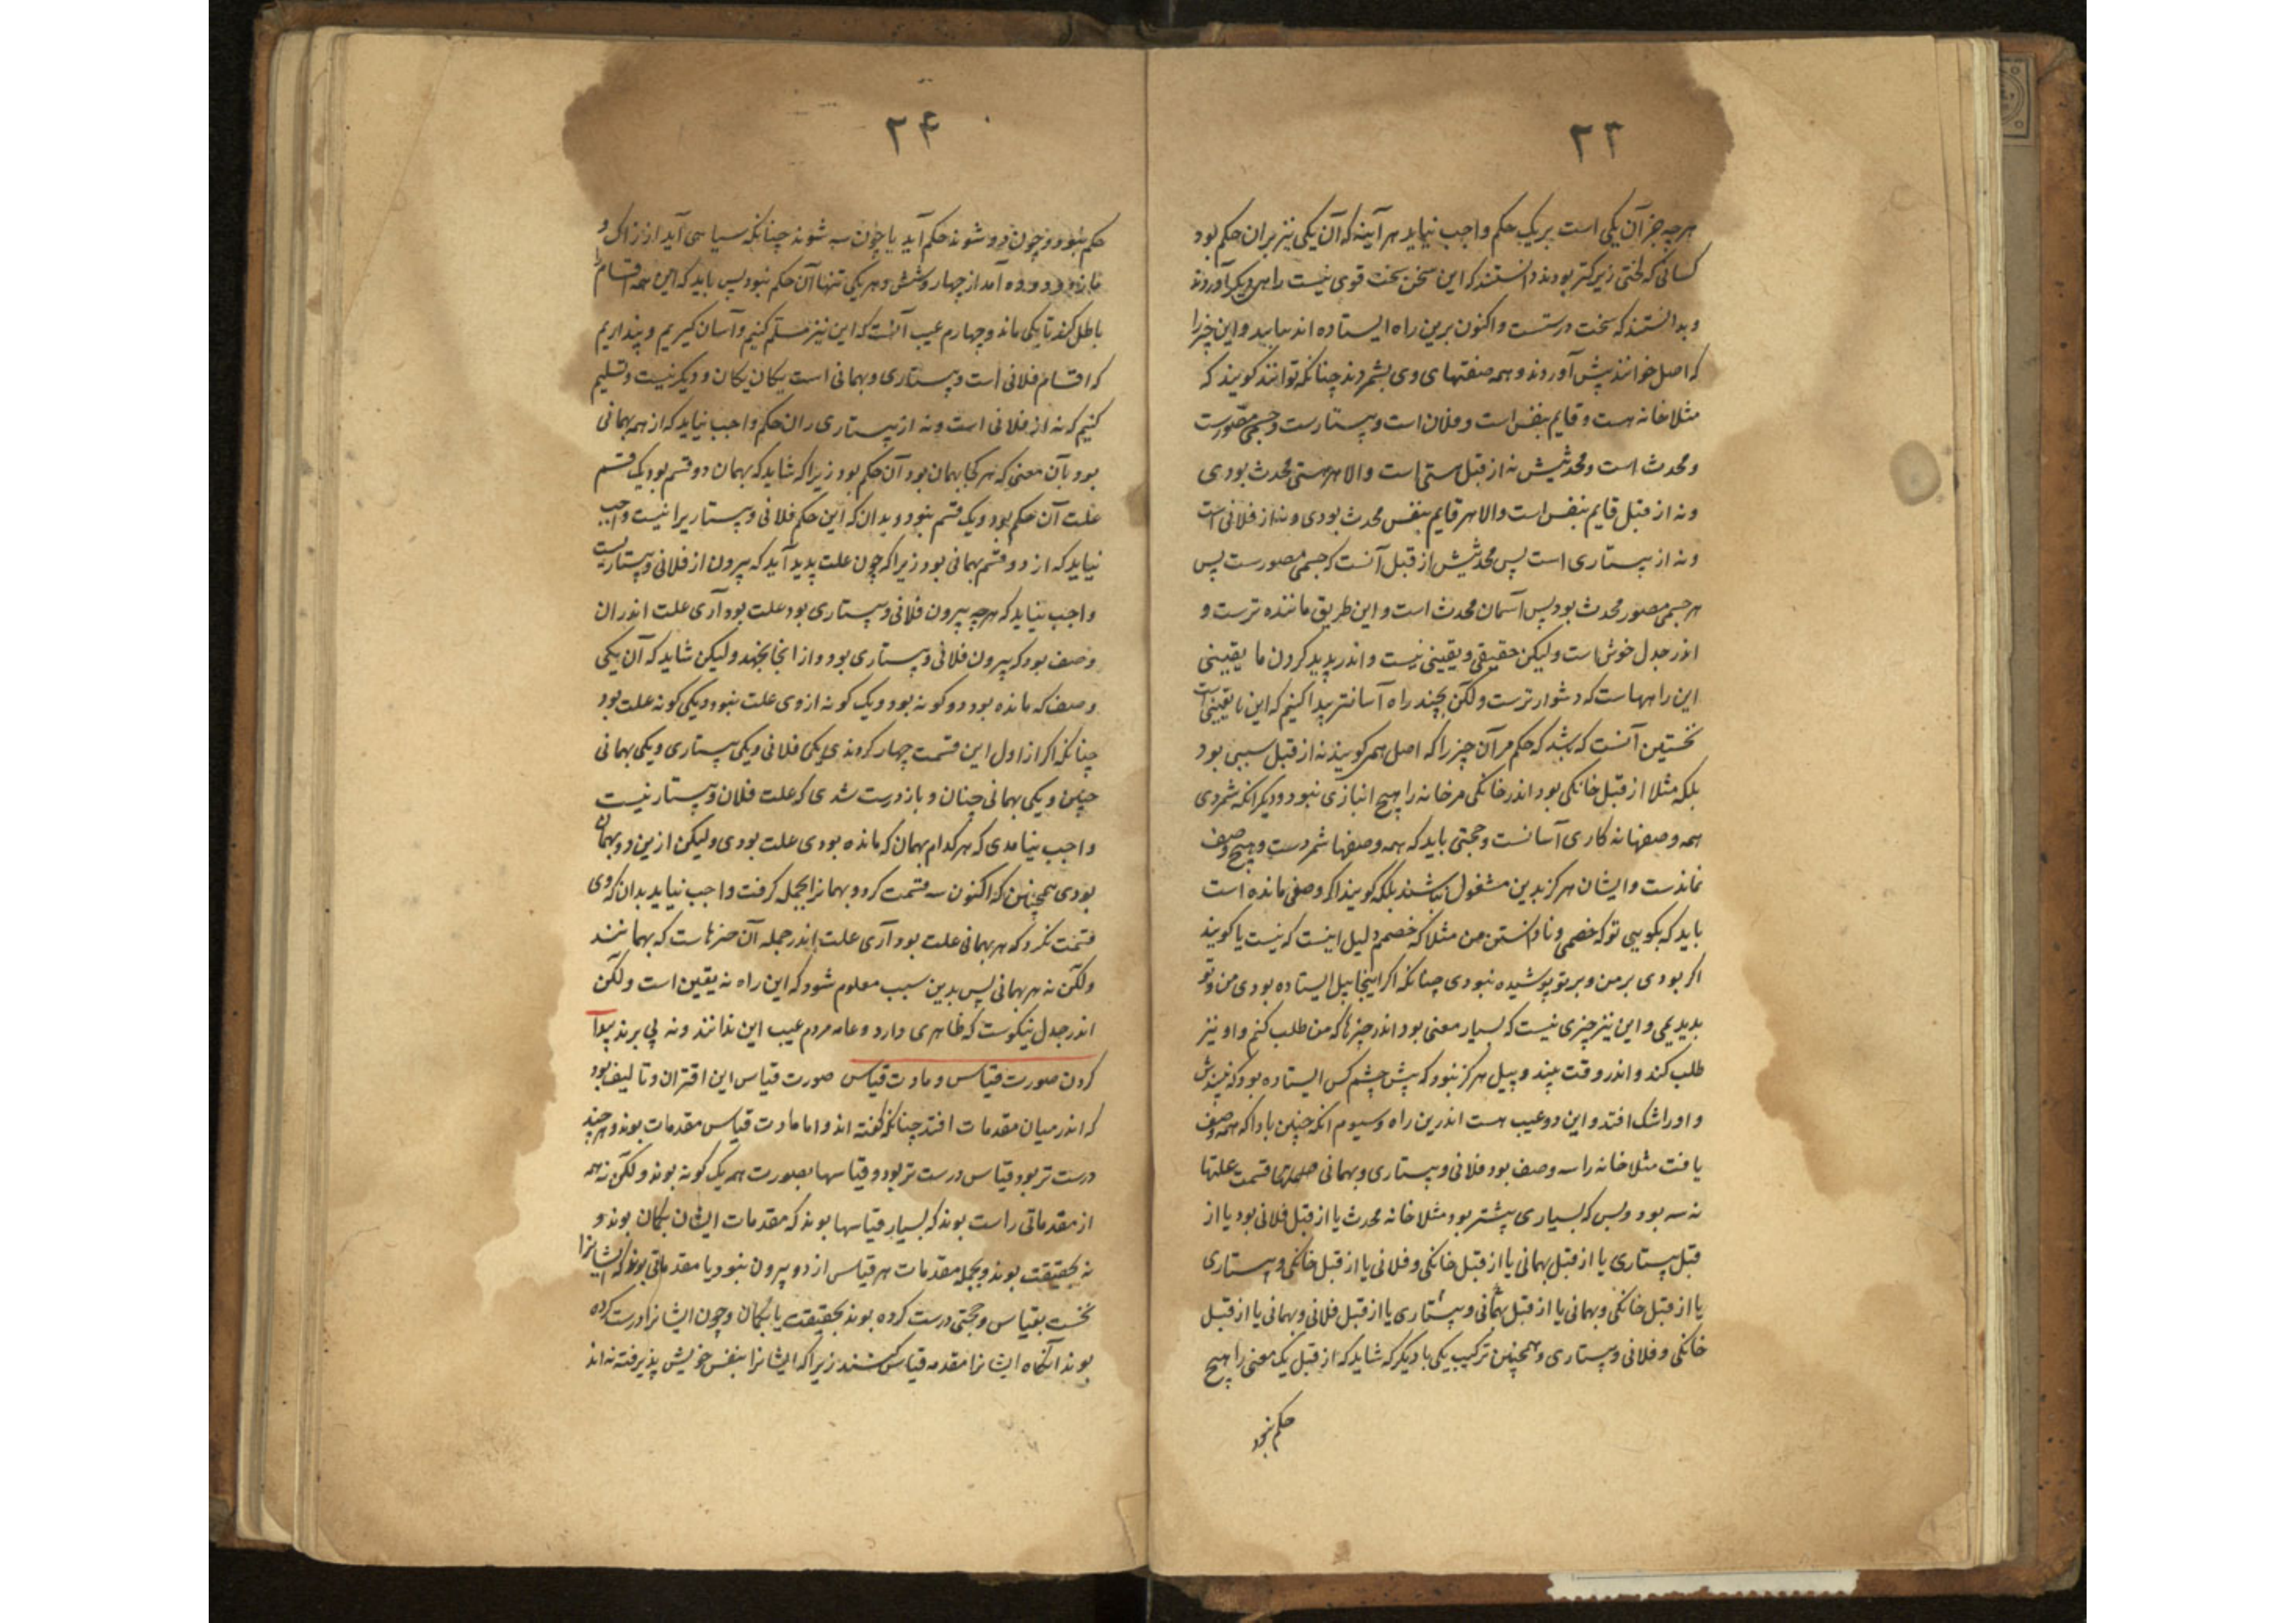 ۲۳
هرچه جز آن یکی است بر یک حکم واجب نیاید هر آینه که آن یکی نیز بران حکم بود
کسانی که لختی زیرکتر بودند دانستند که این سخن سخت قوی نیست راهی دیکر آوردند
و بدانستند که سخت درستست و اکنون برین راه ایستاده اند بیایید و این چیز را
که اصل خوانند پیش آوردند و همه صفتهای وی بشمردند چنانکه توانند کویند که
مثلا خانه هست و قایم بنفس است و فلان است و بیستارست و جسمی مصورست
و محدث است و محدثیش نه از قبل هستی است والا هر هستی محدث بودی
و نه از قبل قایم بنفس است والا هر قایم بنفس محدث بودی و نه از فلانی است
و نه از بیستاری است پس محدثیش از قبل آنست که جسمی مصورست پس
هر جسمی مصور محدث بود پس آسمان محدث است و این طریق ماننده ترست و
اندر جدل خوش است ولیکن حقیقی و یقینی نیست و اندر پدید کردن نا یقینی
این راهها است که دشوارترست ولکن بچند راه آسانتر پیدا کنیم که این نا یقینی است
نخستین آنست که بشد که حکم مر آن چیز را که اصل همی کویند نه از قبل سببی بود
بلکه مثلا از قبل خانکی بود اندر خانکی مر خانه را هیچ انبازی نبود و دیکر آنکه شمردی
همه وصفها نه کاری آسانست و حجتی باید که همه وصفها شمردست و هیچ وصف
نماندست و ایشان هرکز بدین مشغول نباشند بلکه کویند اکر وصفی مانده است
باید که بکویی تو که خصمی و نادانستن من مثلا که خصمم دلیل اینست که نیست یا کویند
اکر بودی بر من و بر تو پوشیده نبودی چنانکه اکر اینجا پیل ایستاده بودی من و تو
بدیدیمی و این نیز چیزی نیست که بسیار معنی بود اندر چیزها که من طلب کنم و او نیز
طلب کند و اندر وقت پند و پیل هرکز نبود که پیش چشم کس ایستاده بود که نبیندش
و او را شک افتد و این دو عیب هست اندرین راه و سیوم آنکه چنین باد که همه وصف
یافت مثلا خانه را سه وصف بود فلانی و بیستاری و بهمانی قسمت علتها
نه سه بود و بس که بسیاری بیشتر بود مثلا خانه محدث یا از قبل فلانی بود یا از
قبل بیستاری یا از قبل بهمانی یا از قبل خانکی و فلانی یا از قبل خانکی و بیستاری
یا از قبل خانکی و بهمانی یا از قبل بهمانی و بیستاری یا از قبل فلانی و بهمانی یا از قبل
خانکی و فلانی و بیستاری و همچنین ترکیب یکی با دیکر که شاید که از قبل یک معنی را هیچ
حکم نبود
۲۴
حکم نبود و چون دو شوند حکم آید یا چون سه شوند چنانکه سیاهی آید از زاک و
مازو و ده آمد از چهار و شش و هر یکی تنها آن حکم نبود پس باید که این همه اقسام را
باطل کند تا یکی ماند و چهارم عیب آنست که این نیز مسلم کنیم و آسان کیریم و پنداریم
که اقسام فلانی است و بیستاری و بهمانی است یکان یکان و دیکر نیست و تسلیم
کنیم که نه از فلانی است و نه از بیستاری ران حکم واجب نیاید که از همه بهمانی
بود بآن معنی که هر کجا بهمان بود آن حکم بود زیرا که شاید که بهمان دو قسم بود یک قسم
علت آن حکم بود و یک قسم نبود و بدان که این حکم فلانی و بیستاریرا نیست واجب
نیاید که از دو قسم بهمانی بود زیرا که چون علت پدید آید که بیرون از فلانی و بیستاریست
واجب نیاید که هرچه بیرون فلانی و بیستاری بود علت بود آری علت اندران
وصف بود که بیرون فلانی و بیستاری بود و از آنجا بجهد ولیکن شاید که آن یکی
وصف که مانده بود دو کونه بود و یک کونه از وی علت نبود و یکی کونه علت بود
چنانکه اکر از اول این قسمت چهار کردندی یکی فلانی و یکی بیستاری و یکی بهمانی
چنین و یکی بهمانی چنان و باز درست شدی که علت فلان و بیستار نیست
واجب نیامدی که هر کدام بهمان که مانده بودی علت بودی ولیکن ازین دو بهمان
بودی همچنین که اکنون سه قسمت کرد و بهمانرا بجمله کرفت واجب نیاید بدان که وی
قسمت نکرد که هر بهمانی علت بود آری علت اندر جمله آن چیزهاست که بهمانند
ولکن نه هر بهمانی پس بدین سبب معلوم شود که این راه نه یقین است ولکن
اندر جدل نیکوست که ظاهری دارد و عامه مردم عیب این ندانند و نه پی برند پیدا
کردن صورت قیاس و مادت قیاس صورت قیاس این اقتران و تالیف بود
که اندر میان مقدمات افتد چنانکه کفته اند و اما مادت قیاس مقدمات بوند و هر چند
درست تر بود قیاس درست تر بود و قیاسها بصورت همه یک کونه بوند ولکن نه همه
از مقدماتی راست بوند که بسیار قیاسها بوند که مقدمات ایشان بکمان بوند و
نه بحقیقت بوند و بجمله مقدمات هر قیاس از دو بیرون نبود یا مقدماتی بوند که ایشانرا
نخست بقیاس و حجتی درست کرده بوند بحقیقت یا بکمان و چون ایشانرا درست کرده
بوند آنکاه ایشانرا مقدمه قیاس کنند زیرا که ایشانرا بنفس خویش پذیرفته نه اند